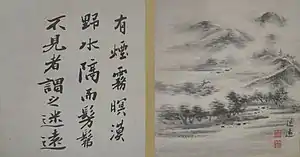 有煙霧暝漠
野水隔而髣髴
不見者謂之迷遠